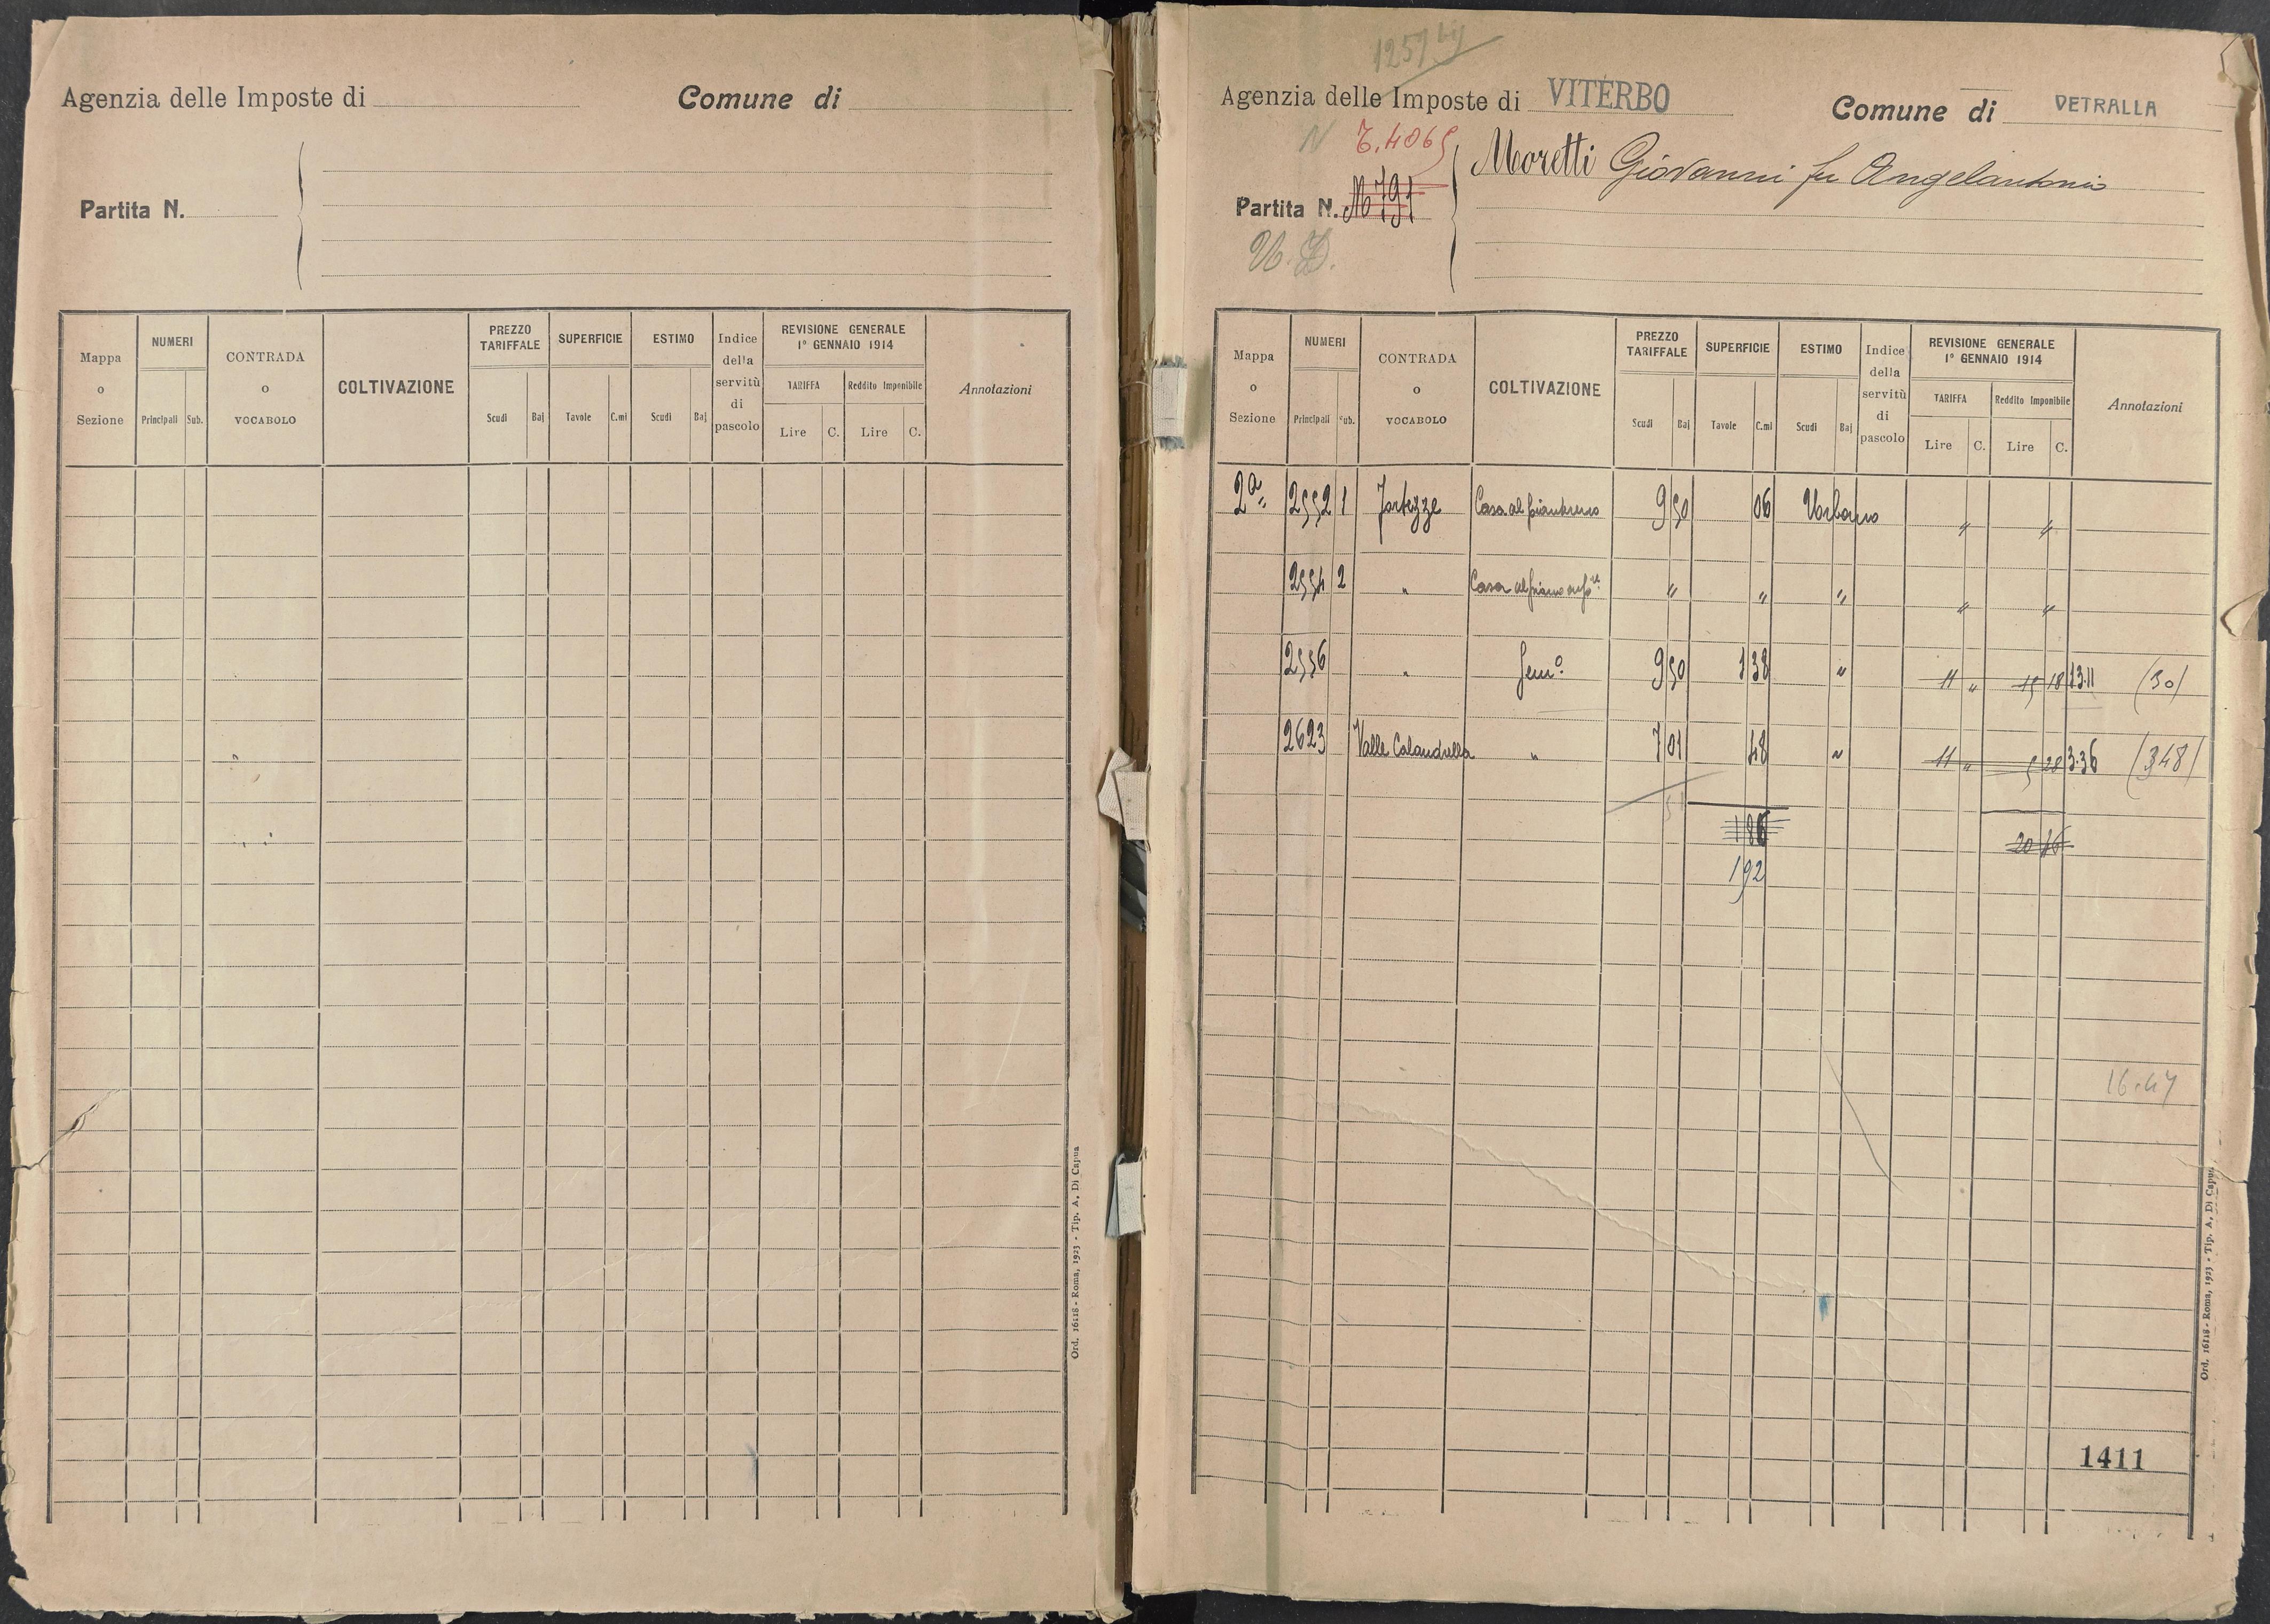 Agenzia delle Imposte di
Comune di
Partita N.
Mappa o Sezione
NUMERI
Principali Sub.
CONTRADA o VOCABOLO
COLTIVAZIONE
PREZZO TARIFFALE
Scudi Baj
SUPERFICIE
Tavole C.mi
ESTIMO
Scudi Baj
Indice della servitù di pascolo
REVISIONE GENERALE
1° GENNAIO 1914
TARIFFA
Lire C.
Reddito Imponibile
Lire C.
Annotazioni
Ord. 16118 - Roma, 1923 - Tip. A. Di Capua
1257 bis
Agenzia delle Imposte di VITERBO
Comune di VETRALLA
N 7.4065
Moretti Giovanni fu Angelantonio
Partita N. M 791
Mappa o Sezione
NUMERI
Principali Sub.
CONTRADA o VOCABOLO
COLTIVAZIONE
PREZZO TARIFFALE
Scudi Baj
SUPERFICIE
Tavole C.mi
ESTIMO
Scudi Baj
Indice della servitù di pascolo
REVISIONE GENERALE
1° GENNAIO 1914
TARIFFA
Lire C.
Reddito Imponibile
Lire C.
Annotazioni
2a 2552 1 Fortezze Casa al pianterreno 9 50 06 Urbano " "
2554 2 " Casa al piano sup.re " " " " "
2556 " Sem.o 9 50 1 38 " 11 " 15 18 13.11 (30)
2623 Valle Calandrella " 7 01 48 " 11 " 5 28 3.36 (348)
1 86 20 46
1 92
16.47
1411
Ord. 16118 - Roma, 1923 - Tip. A. Di Capua